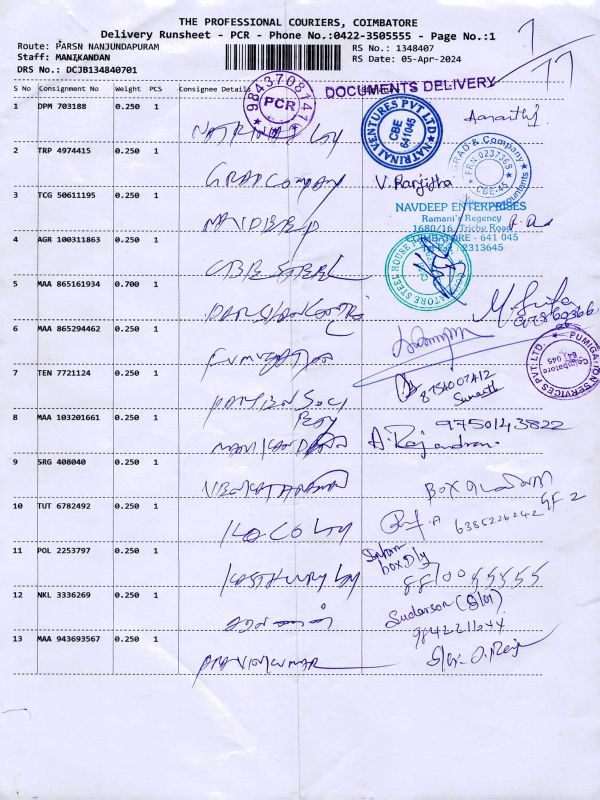 THE PROFESSIONAL COURIERS, COIMBATORE
Delivery Runsheet - PCR - Phone No.:0422-3505555 - Page No.:1
Route: PARSN NANJUNDAPURAM
RS No.: 1348407
Staff: MANIKANDAN
RS Date: 05-Apr-2024
DRS No.: DCJB134840701
S No Consignment No Weight PCS Consignee Details
9843708141
PCR
DOCUMENTS DELIVERY
1 DPM 703188 0.250 1
NATRINAI VENTURES PVT LTD
CBE
641045
2 TRP 4974415 0.250 1
GRAD COMPANY
V. Ranjitha
GRAD & Company
FRN 023736S
CBE-45
3 TCG 50611195 0.250 1
NAVDEEP
NAVDEEP ENTERPRISES
Ramani's Regency
1680/16, Trichy Road
COIMBATORE - 641 045
Tel Fax : 2313645
4 AGR 100311863 0.250 1
CBE STEEL
COIMBATORE STEEL HOUSE
5 MAA 865161934 0.700 1
6 MAA 865294462 0.250 1
FUMIGATION SERVICES PVT. LTD.
Coimbatore
641 045
7 TEN 7721124 0.250 1
8754007412
8 MAA 103201661 0.250 1
MANIKANDAN
A. Rajendran
9750143822
9 SRG 408040 0.250 1
VENKATARAMAN
10 TUT 6782492 0.250 1
6385226242 GF 2
11 POL 2253797 0.250 1
KASTHURY
box Dly
8870055555
12 NKL 3336269 0.250 1
Sudarson (S/o)
13 MAA 943693567 0.250 1
PRAVIN KUMAR